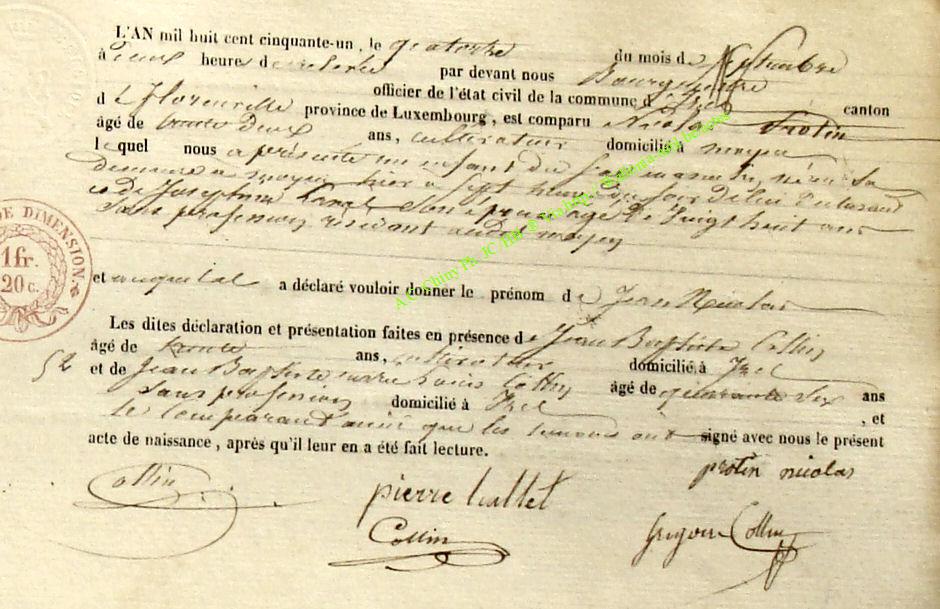 L'AN mil huit cent cinquante-un, le quatorze du mois de Septembre
à heure d par devant nous Bourgmestre
officier de l'état civil de la commune d'Izel canton
de Florenville province de Luxembourg, est comparu Nicolas Protin
âgé de trente Deux ans, cultivateur domicilié à moyen
lequel nous a présenté un enfant du sexe masculin, né en sa
demeure à moyen, hier à sept heures du soir de lui Déclarant
et de Josephine son épouse agée de vingt huit ans
Sans profession résidant audit moyen
et auquel a déclaré vouloir donner le prénom de Jean Nicolas
Les dites déclaration et présentation faites en présence de Jean Baptiste Collin
âgé de trente ans, cultivateur domicilié à Izel
52
et de Jean Baptiste Collin âgé de quarante Six ans
Sans profession domicilié à Izel, et
le Comparant ainsi que les temoins ont signé avec nous le présent
acte de naissance, après qu'il leur en a été fait lecture.
protin nicolas
Collin
pierre
Collin
Grégoire Collin
DE DIMENSION.
1 fr.
20 c.